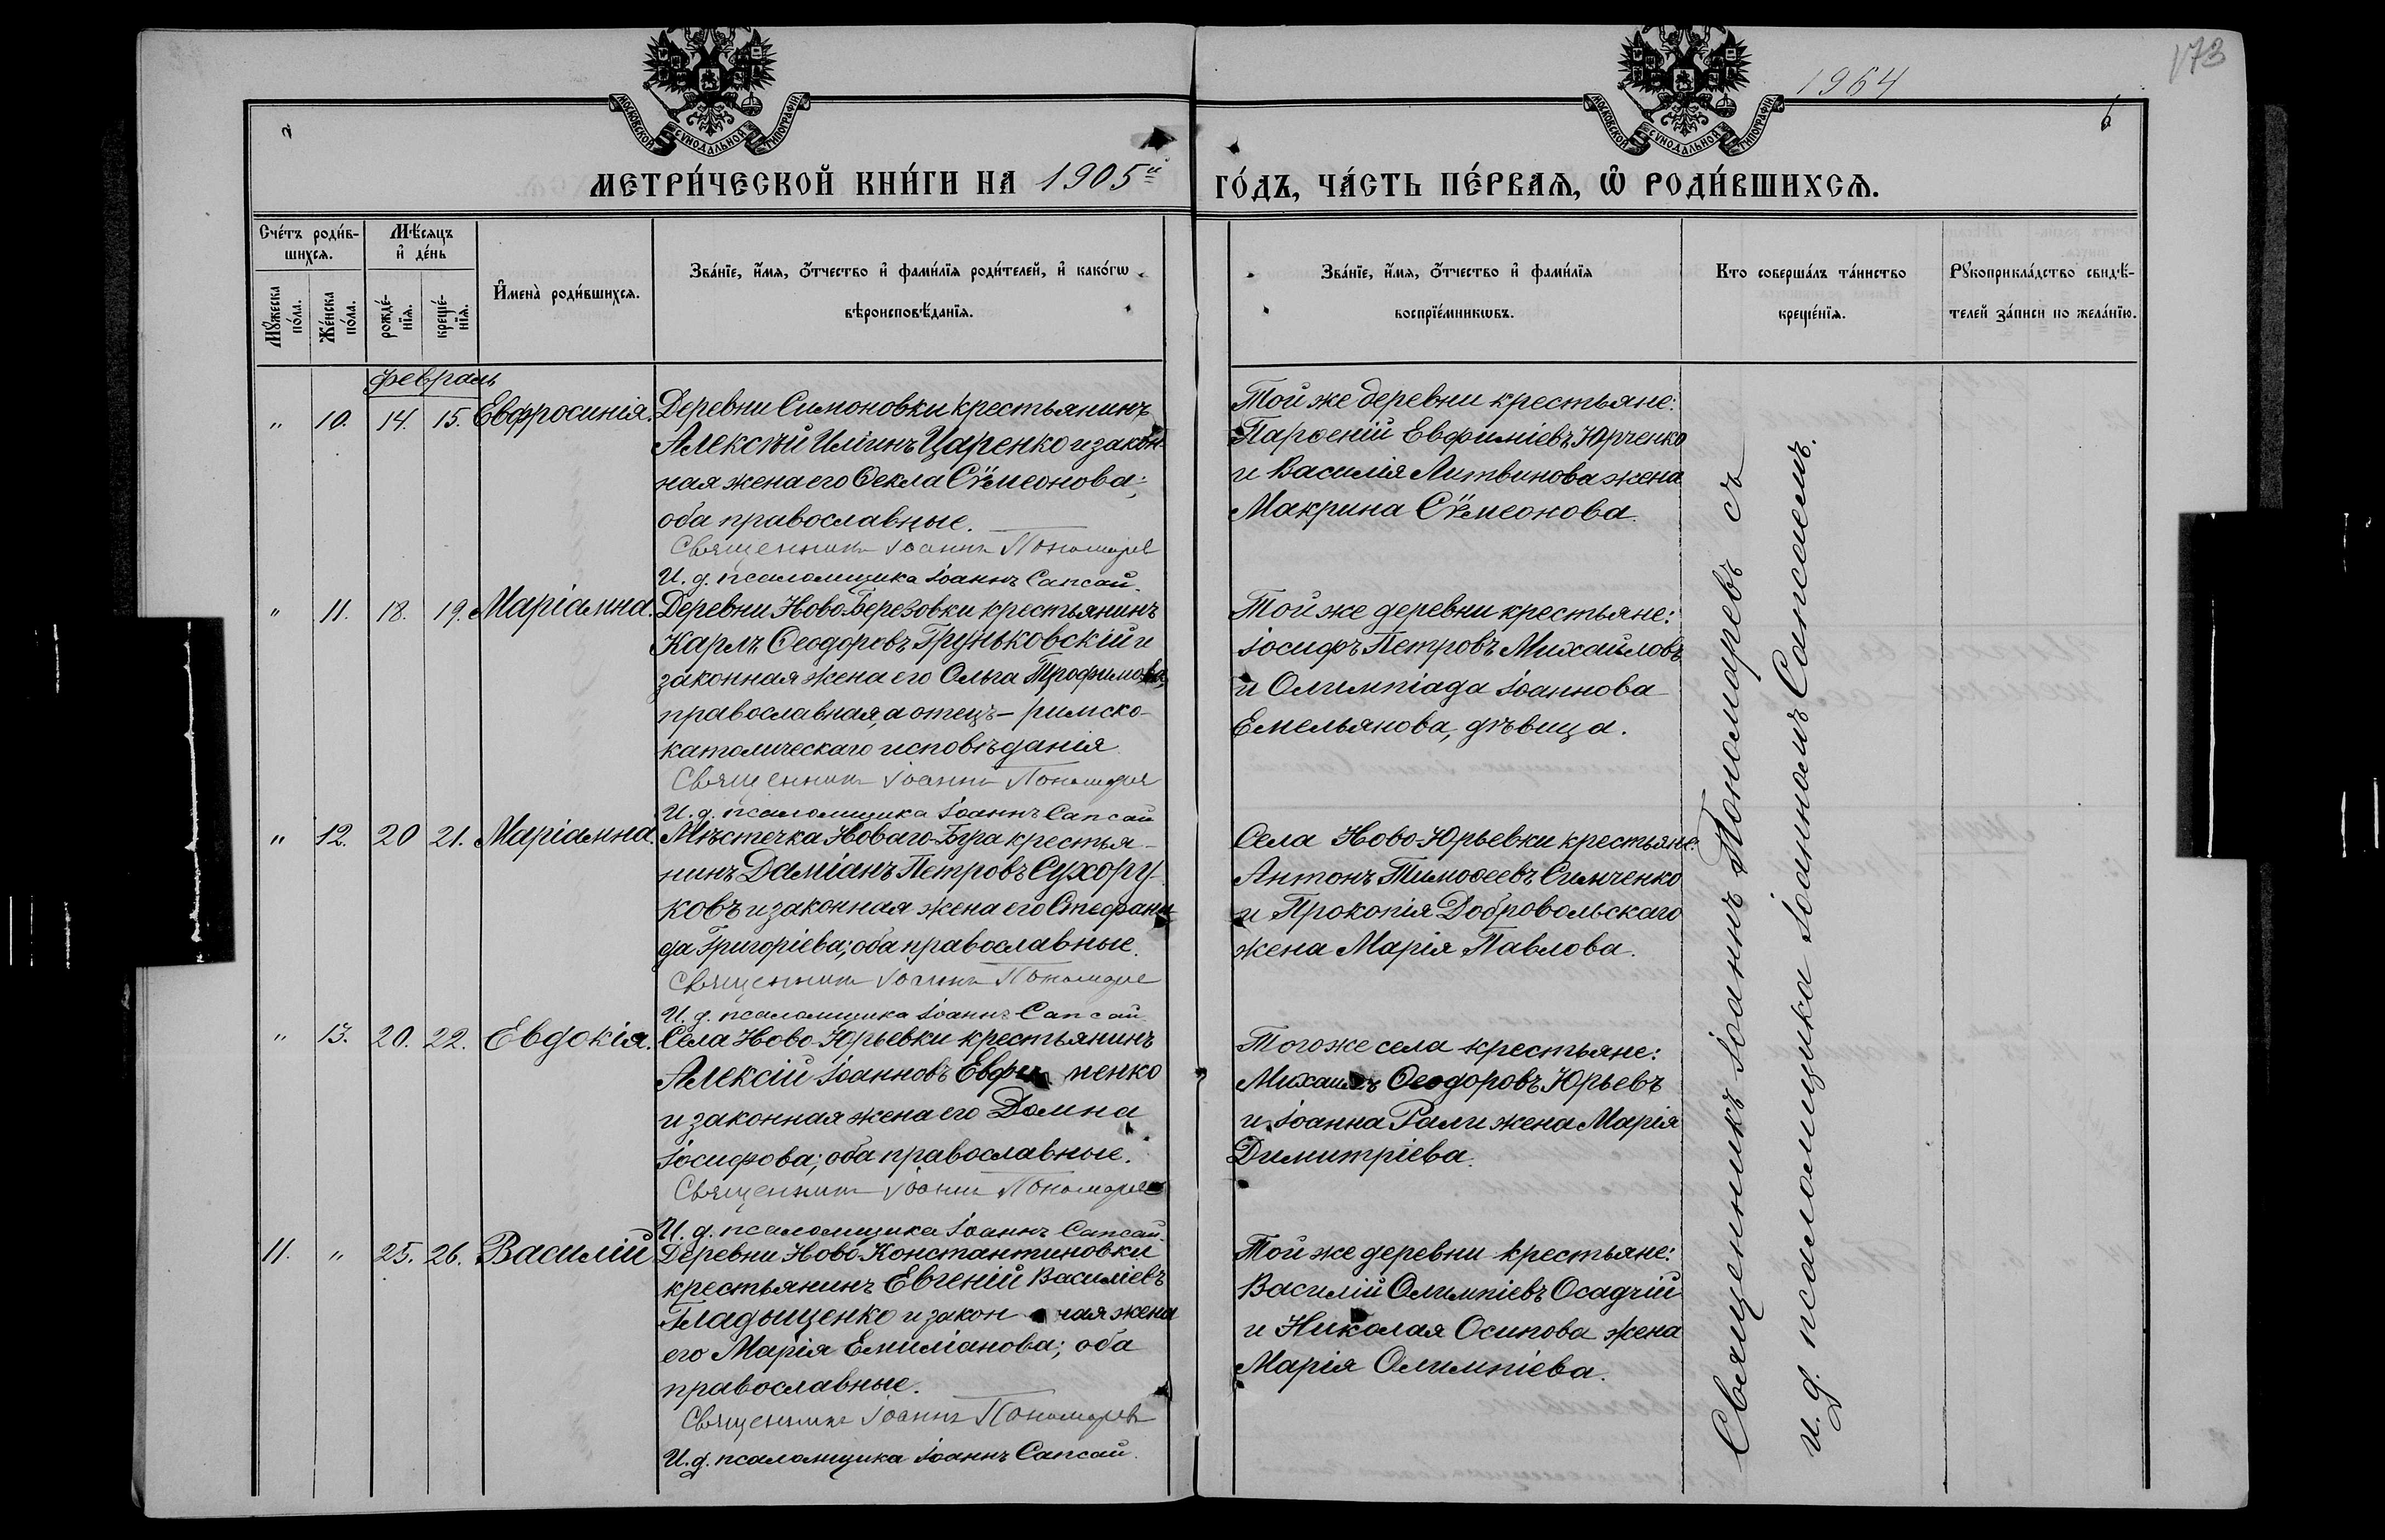 173
1964
2
6
МОСКОВСКОЙ СѴНОДАЛЬНОЙ ТИПОГРАФІИ
МОСКОВСКОЙ СѴНОДАЛЬНОЙ ТИПОГРАФІИ
МЕТРИ́ЧЕСКОЙ КНИ́ГИ НА 1905й ГО́ДЪ, ЧА́СТЬ ПЕ́РВАѦ, Ѡ҆ РОДИ́ВШИХСѦ.
Сче́тъ роди́в-
шихсѧ.
Мѣ́сяцъ
и҆ де́нь
Мꙋ́жеска
по́ла.
Же́нска
по́ла.
рожде́-
нїѧ.
креще́-
нїѧ.
И҆мена̀ роди́вшихсѧ.
Зва́нїе, и҆́мѧ, ѻ҆́тчество и҆ фами́лїѧ роди́телей, и҆ како́гѡ
вѣроисповѣ́данїѧ.
Зва́нїе, и҆́мѧ, ѻ҆́тчество и҆ фами́лїѧ
воспрїе́мникѡвъ.
Кто соверша́лъ та́инство
креще́нїѧ.
Рꙋкоприкла́дство свидѣ́-
телей за́писи по жела́нїю.
февраль
" 10. 14. 15. Евфросинія. Деревни Симоновки крестьянинъ
Алексѣй Иліинъ Царенко и закон-
ная жена его Ѳекла Сѷмеонова;
оба православные.
Священникъ Іоаннъ Пономарев
И. д. псаломщика Іоаннъ Сапсай.
Той же деревни крестьяне:
Парѳеній Евфиміевъ Юрченко
и Василія Литвинова жена
Макрина Сѷмеонова.
" 11. 18. 19. Маріамна. Деревни Ново-Березовки крестьянинъ
Карлъ Ѳеодоровъ Груньковскій и
законная жена его Ольга Трофимова,
православная, а отецъ – римско-
католическаго исповѣданія
Священникъ Іоаннъ Пономарев
И. д. псаломщика Іоаннъ Сапсай
Той же деревни крестьяне:
Іосифъ Петровъ Михайловъ
и Олимпіада Іоаннова
Емельянова, дѣвица.
" 12. 20 21. Маріамна. Мѣстечка Новаго-Буга крестья-
нинъ Даміанъ Петровъ Сухору-
ковъ и законная жена его Стефани-
да Григоріева; оба православные.
Священникъ Іоаннъ Пономарев
И. д. псаломщика Іоаннъ Сапсай
Села Ново-Юрьевки крестьяне:
Антонъ Тимоѳеевъ Симченко
и Прокопія Добровольскаго
жена Марія Павлова.
" 13. 20. 22. Евдокія. Села Ново-Юрьевки крестьянинъ
Алексій Іоанновъ
и законная жена его Домна
Іосифова; оба православные.
Священникъ Іоаннъ Пономарев
И. д. псаломщика Іоаннъ Сапсай.
Того же села крестьяне:
Михаилъ Ѳеодоровъ Юрьевъ
и Іоанна Рали жена Марія
Димитріева.
11. " 25. 26. Василій Деревни Ново-Константиновки
крестьянинъ Евгеній Василіевъ
Гладыщенко и законная жена
его Марія Емиліанова; оба
православные.
Священникъ Іоаннъ Пономарев
И. д. псаломщика Іоаннъ Сапсай.
Той же деревни крестьяне:
Василій Олимпіевъ Осадчій
и Николая Осипова жена
Марія Олимпіева.
Священникъ Іоаннъ Пономаревъ съ
и. д. псаломщика Іоанномъ Сапсаемъ.